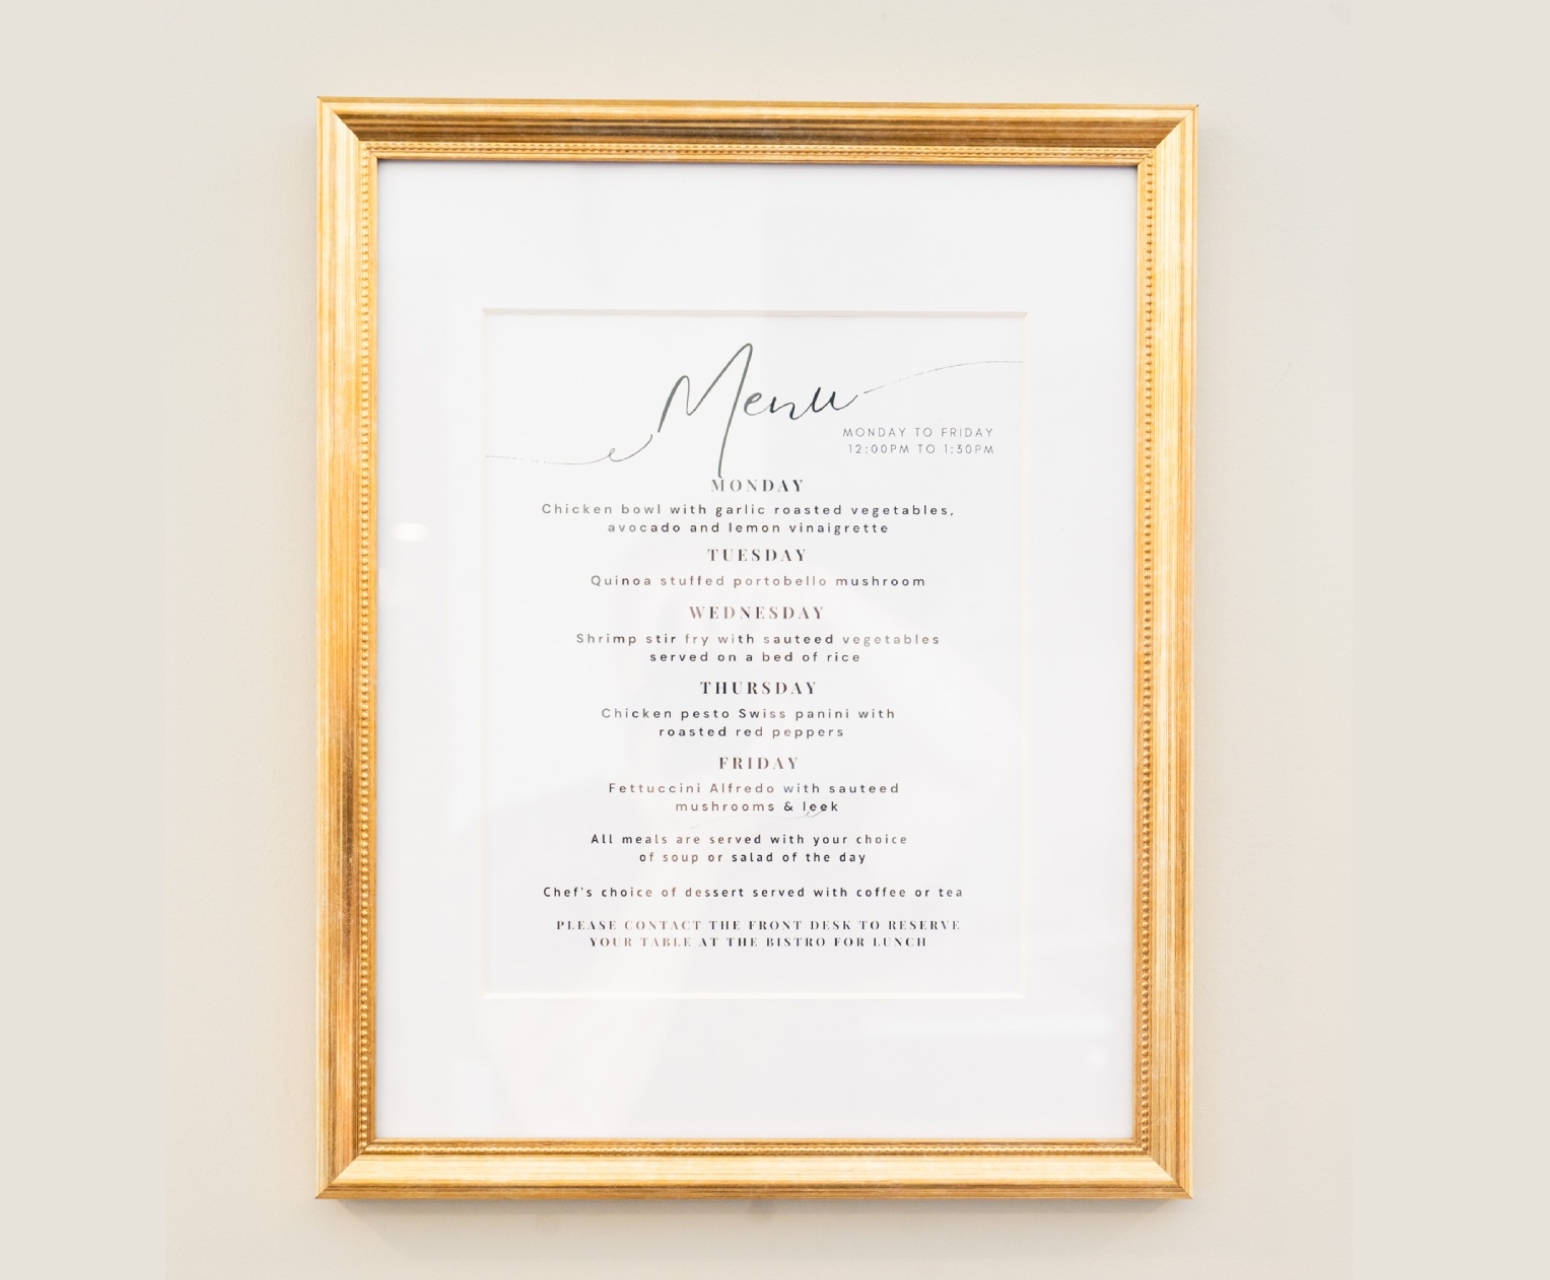 Menu
MONDAY TO FRIDAY
12:00PM TO 1:30PM
MONDAY
Chicken bowl with garlic roasted vegetables,
avocado and lemon vinaigrette
TUESDAY
Quinoa stuffed portobello mushroom
WEDNESDAY
Shrimp stir fry with sauteed vegetables
served on a bed of rice
THURSDAY
Chicken pesto Swiss panini with
roasted red peppers
FRIDAY
Fettuccini Alfredo with sauteed
mushrooms & leek
All meals are served with your choice
of soup or salad of the day
Chef's choice of dessert served with coffee or tea
PLEASE CONTACT THE FRONT DESK TO RESERVE
YOUR TABLE AT THE BISTRO FOR LUNCH